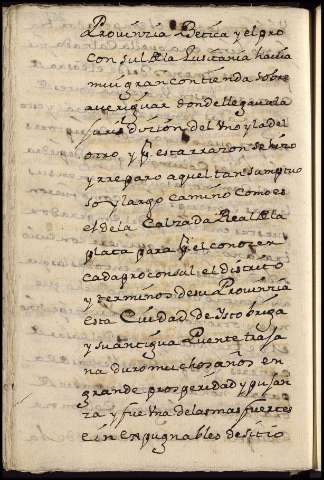 Provinzia Betica y el pro
consul de la Lusitania havia
mui gran contienda sobre
averiguar donde llegava la
juris dizion del vno y la del
otro y q̃ esta rrazon se hizo
y rreparo aquel tan sumptuo
so y largo camino como es
el de la Calzada Real de la
plata para q̃ el conozen
cada proconsul el distrito
y terminos de su Provinzia
esta Ciudad de Istobriga
y su antigua Puente traja
na duro muchos años en
grande prosperidad y pujan
za y fue vna de las mas fuertes
e in expugnables de sitio